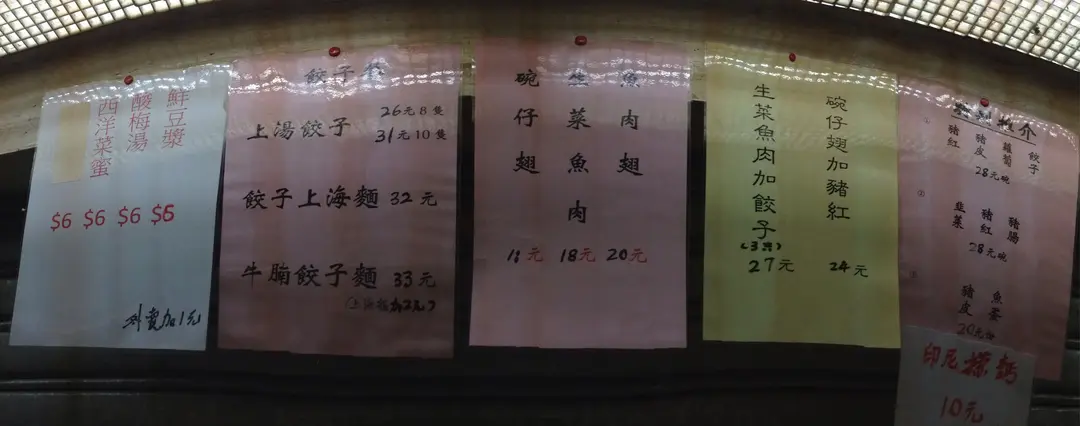 鮮豆漿
酸梅湯
西洋菜蜜
$6 $6 $6 $5
外賣加1元
餃子
上湯餃子
26元8隻
31元10隻
餃子上海麵 32元
牛腩餃子麵 33元
碗仔翅
生菜魚肉
魚肉翅
18元 20元
碗仔翅加豬紅
生菜魚肉加餃子
27元
24元
推介
餃子
蘿蔔
豬皮
豬紅
28元碗
豬腸
豬紅
韭菜
28元碗
魚蛋
豬皮
20元
印尼
10元